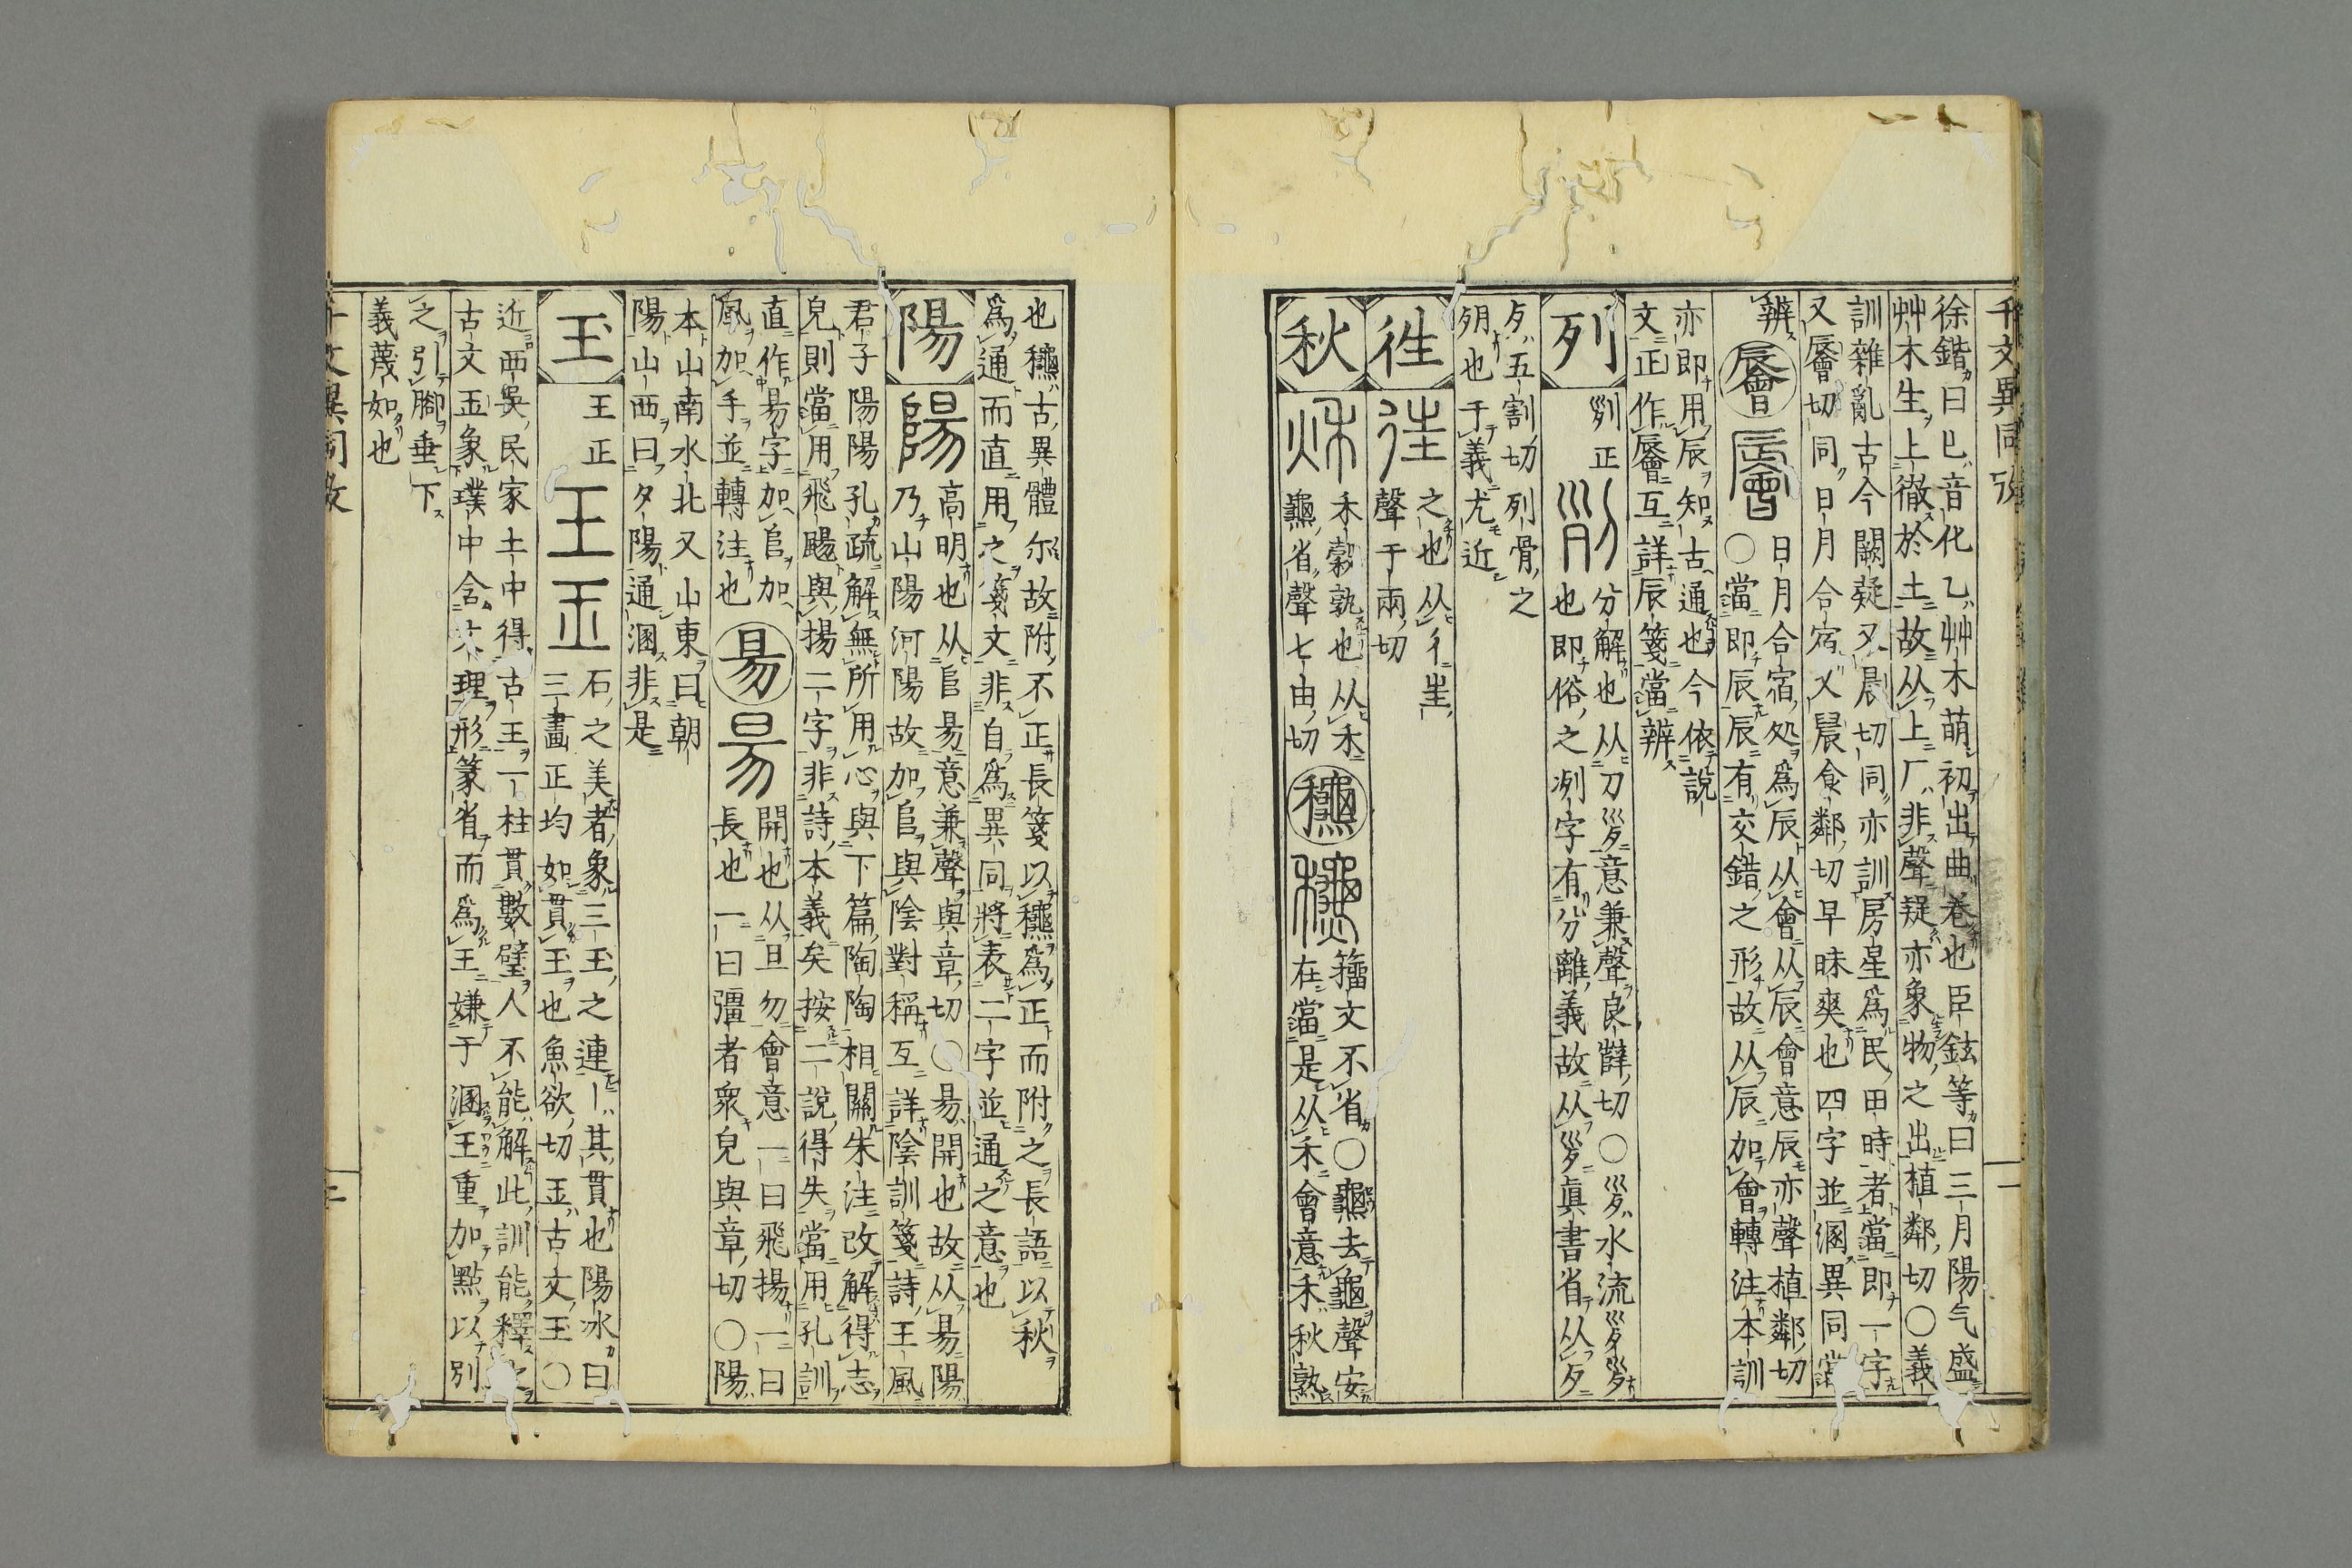 千文異同攷
徐鍇曰巳音化乙艸木萌初出曲卷也臣鉉等曰三月陽气盛
艸木生上徹於土故从上厂非聲疑亦象物之出植鄰切〇義
訓雜亂古今闕疑又晨切同亦訓房星爲民田時者當即一字
又䢅切同日月合宿又晨食鄰切早昧爽也四字並溷異同當
辨
日月合宿処爲辰从會从辰會意辰亦聲植鄰切
〇當即辰辰有交錯之形故从辰加會轉注本訓
亦即用辰知古通也今依說
文正作互詳辰箋當辨
列
正
分解也从刀意兼聲良辥切〇水流
也即俗之冽字有分離義故从眞書省从夕
歺五割切列骨之
𣦵也千義尤近
往
之也从彳㞷
聲于兩切
秋
禾穀孰也从禾
省聲七由切
籀文不省〇去龜聲安
在當是从禾會意禾秋熟
也古異體尔故附不正長箋以爲正而附之長語以秋
爲通而直用之箋文非自爲異同將表二字並通之意也
陽
高明也从𨸏昜意兼聲與章切〇昜開也故从昜陽
乃山陽河陽故加𨸏與陰對稱互詳陰訓箋詩王風
君子陽陽孔疏解無所用心與下篇陶陶相關朱注改解得志
皃則當用飛颺與揚二字非詩本義矣按二說得失當用孔訓
直作昜字加𨸏加
風加手並轉注也
昜
開也从旦勿會意一曰飛揚一曰
長也一曰彊者衆皃與章切〇陽
本山南水北又山東曰朝
陽山西曰夕陽通溷非是
玉
王正
石之美者象三玉之連丨其貫也陽冰曰
三畫正均如貫玉也魚欲切古文玉〇
近西吳民家土中得古王一柱貫數璧人不能解此訓能釋之
古文玉象璞中含文理形篆省而爲王嫌于溷王重加點以別
之引腳垂下
義蔑如也
千文異同攷